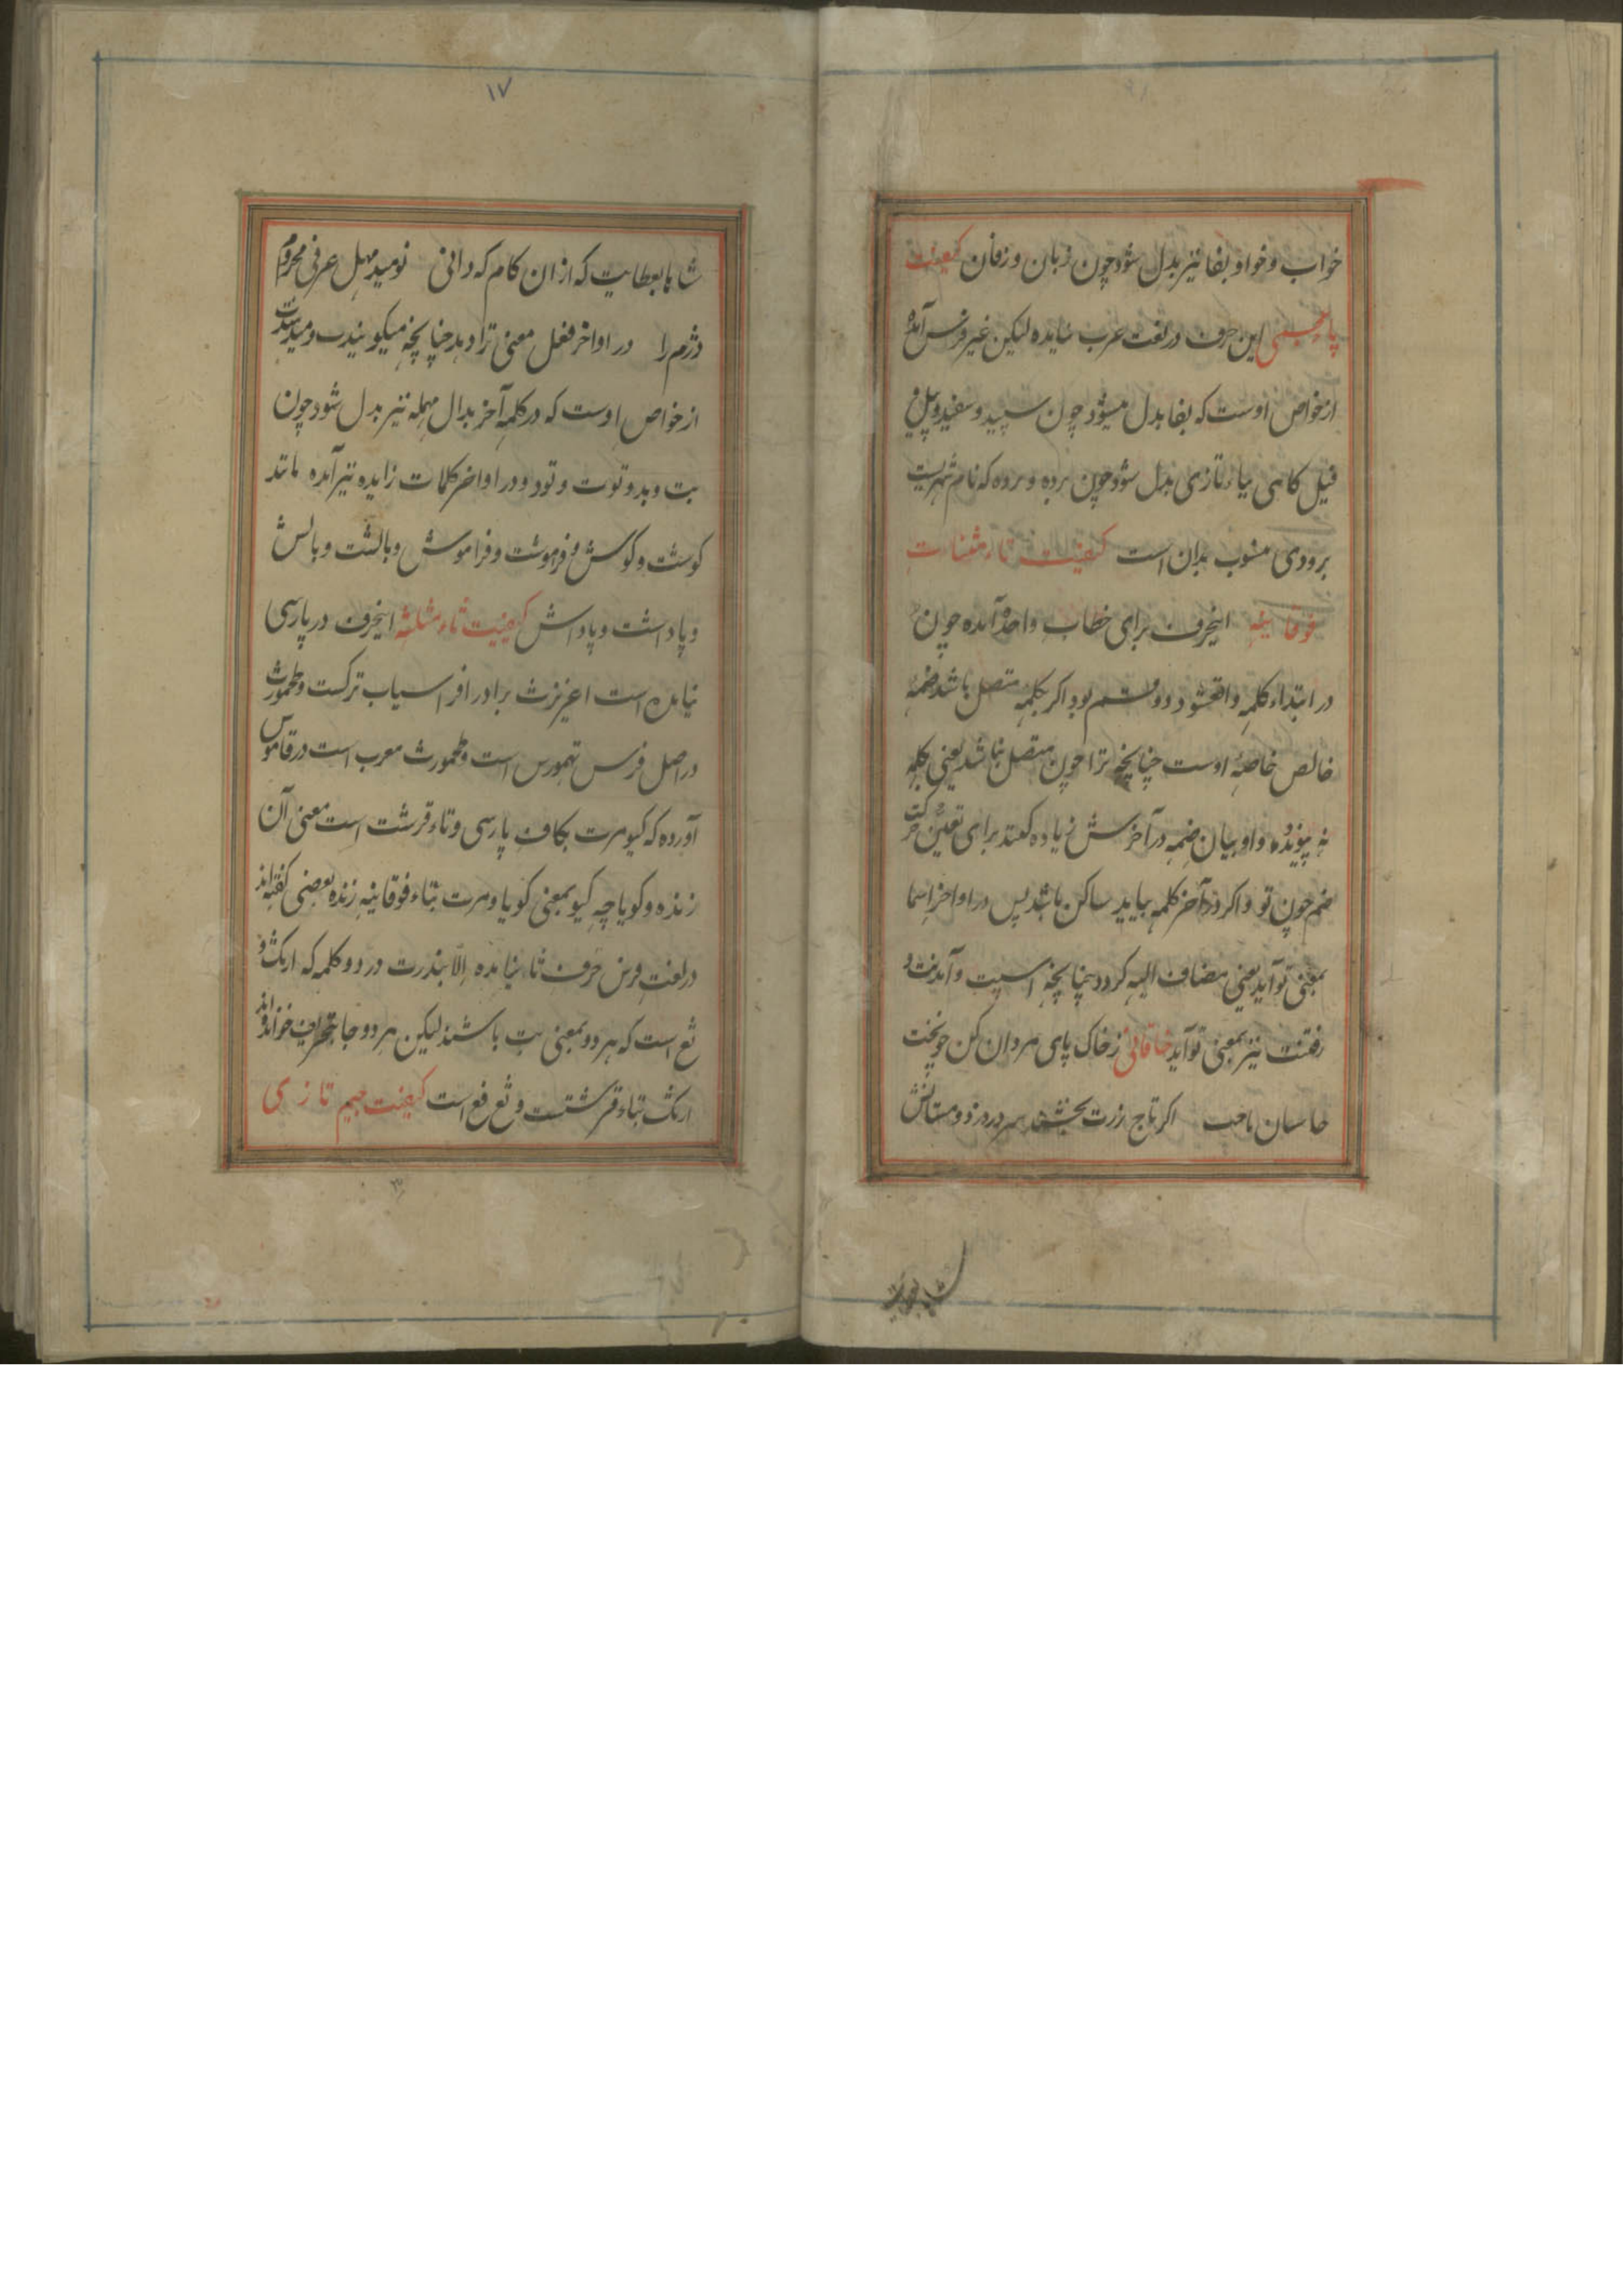 خواب و خواو بفا نیز بدل شود چون زبان و زفان کیفیت
پاء عجمی این حرف در لغت عرب نیامده لیکن غیر فرس آمده
از خواص اوست که بفا بدل میشود چون سپید و سفید و پیل و
فیل کاهی بباء تازی بدل شود چون برده و بروه که نام شهریست
برودی منسوب بدان است کیفیت تاء مثنات
فوقانیه اینحرف برای خطاب واحد آمده چون
در ابتداء کلمه واقعشود دو قسم بود اکر بکلمه متصل باشد ضمه
خالص خاصهٔ اوست چنانچه ترا چون متصل نباشد یعنی بکلمه
نه پیوندد واو بیان ضمه در آخرش زیاده کنند برای تعین حرکت
ضم چون تو و اکر در آخر کلمه بیاید ساکن باشد پس در اواخر اسما
بمعنی تو آید یعنی مضاف الیه کردد چنانچه اسپت و آمدنت و
رفتنت نیز بمعنی تو آید خاقانی زخاک پای مردان کن چو تخت
حاسبان تاجت اکر تاج زرت بخشند سر دردزد و مستانش
شاها بعطایت
۱۷
شاها بعطایت که از ان کام که دانی نومید مهل عرفی محروم
دژم را در اواخر فعل معنی ترا دهد چنانچه میکویندت و میدهندت
از خواص اوست که در کلمه آخر بدال مهمله نیز بدل شود چون
بت و بد و توت و تود و در اواخر کلمات زایده نیز آمده مانند
کوشت و کوش و فرموشت و فراموش و بالشت و بالش
و پاداشت و پاداش کیفیت ثاء مثلثه اینحرف در پارسی
نیامده است اغریرث برادر افراسیاب ترکست و طهمورث
در اصل فرس تهمورس است و طهمورث معرب است در قاموس
آورده که کیومرت بکاف پارسی و تاء قرشت است معنی آن
زنده و کویا چه کیو بمعنی کویا و مرت بتاء فوقانیه زنده بعضی کفته‌اند
در لغت فرس حرف ثا نیامده الا بندرت در دو کلمه که ارثنک و
ثغ است که هر دو بمعنی بت باشند لیکن هر دو جا بتحریف خوانده‌اند
ارتنک بتاء قرشتست و ثغ فغ است کیفیت جیم تازی